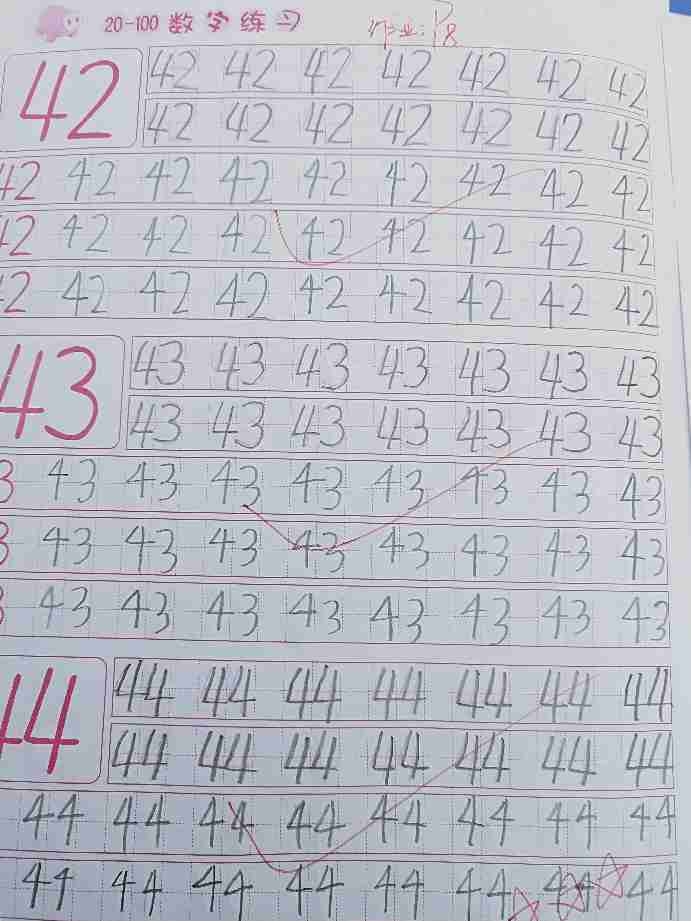 20-100 数字练习 作业:P8
42 42 42 42 42 42 42 42
42 42 42 42 42 42 42
42 42 42 42 42 42 42 42 42
42 42 42 42 42 42 42 42 42
42 42 42 42 42 42 42 42 42
43 43 43 43 43 43 43 43
43 43 43 43 43 43 43
3 43 43 43 43 43 43 43 43
3 43 43 43 43 43 43 43 43
3 43 43 43 43 43 43 43 43
44 44 44 44 44 44 44 44
44 44 44 44 44 44 44
44 44 44 44 44 44 44 44
44 44 44 44 44 44 44 44